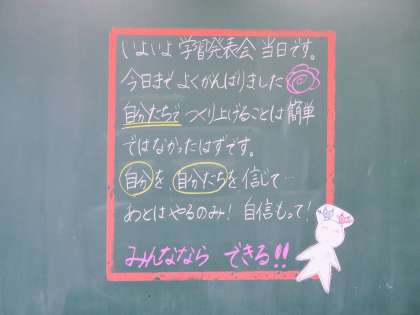 いよいよ 学習発表会 当日です。
今日まで よくがんばりました
自分たちで つくり上げることは 簡単
ではなかったはずです。
自分を 自分たちを 信じて…
あとはやるのみ! 自信もって!
みんななら できる!!